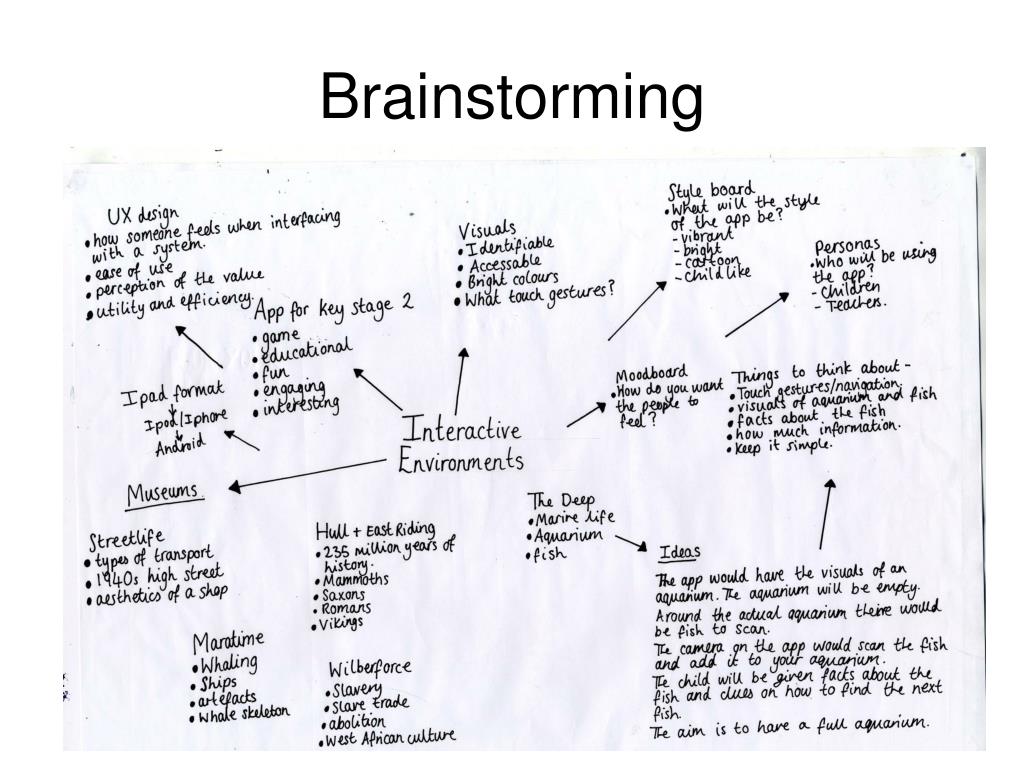 Brainstorming
UX design
• how someone feels when interfacing
with a system.
• ease of use
• perception of the value
• utility and efficiency.
App for key stage 2
• game
• educational
• fun
• engaging
• interesting
Visuals
• Identifiable
• Accessable
• Bright colours
• What touch gestures?
Style board
• What will the style
of the app be?
- vibrant
- bright
- cartoon
- Child like
Personas
• Who will be using
the app?
- Children
- Teachers.
Ipad format
Ipod/Iphone
Android
Moodboard
• How do you want
the people to
feel?
Things to think about -
• Touch gestures/navigation,
• visuals of aquarium and fish
• facts about the fish
• how much information.
• Keep it simple.
Interactive
Environments
Museums.
Streetlife
• types of transport
• 1940s high street
• aesthetics of a shop
Hull + East Riding
• 235 million years of
history.
• Mammoths
• Saxons
• Romans
• Vikings
Maratime
• Whaling
• Ships
• artefacts
• Whale skeleton
Wilberforce
• Slavery
• Slave trade
• abolition
• West African culture
The Deep
• Marine life
• Aquarium
• fish
Ideas
The app would have the visuals of an
aquarium. The aquarium will be empty.
Around the actual aquarium there would
be fish to scan.
The camera on the app would scan the fish
and add it to your aquarium.
The child will be given facts about the
fish and clues on how to find the next
fish.
The aim is to have a full aquarium.